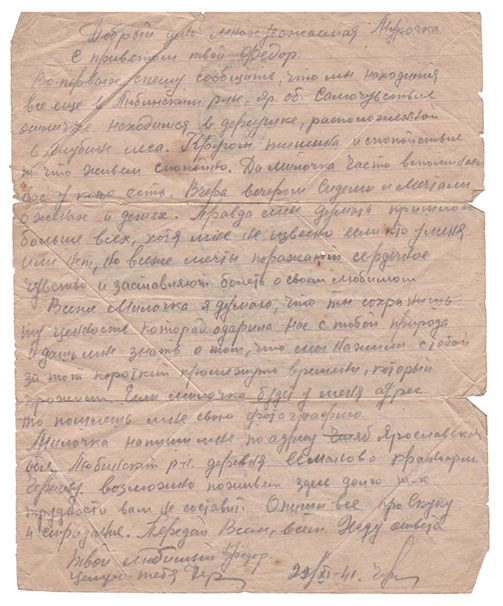 Добрый день многоуважаемая Мурочка
с приветом твой Федор.
Во-первых спешу сообщить, что мы находимся
все еще в Любимском р-не Яр. об. Самочувствие
находимся в деревушке, расположенной
в глубине леса. Кругом тишина и спокойствие
и что живем спокойно. Да милочка часто вспоминаем
вас у кого есть. Вчера вечером сидели и мечтали
о женах и детях. Правда мне думать пришлось
больше всех, хотя мне не известно есть кто у меня
или нет, но все же мечты поражают сердечное
чувство и заставляют болеть о своем любимом
Милочка я думаю, что ты сохранишь
ту ценность которой одарила нас с тобой природа
и дашь мне знать о том, что мы нажили с тобой
за тот короткий промежуток времени, который
Если милочка будет у меня адрес
то пошлешь мне свою фотографию.
Милочка напиши мне по адресу Ярославская
обл. Любимский р-н. деревня
возможно поживем здесь долго т-к
трудности вам не составит. Опиши все про
и Передай Всем, всем. Жду ответа
Твой любимый Федор.
целую тебя 29/XI-41.